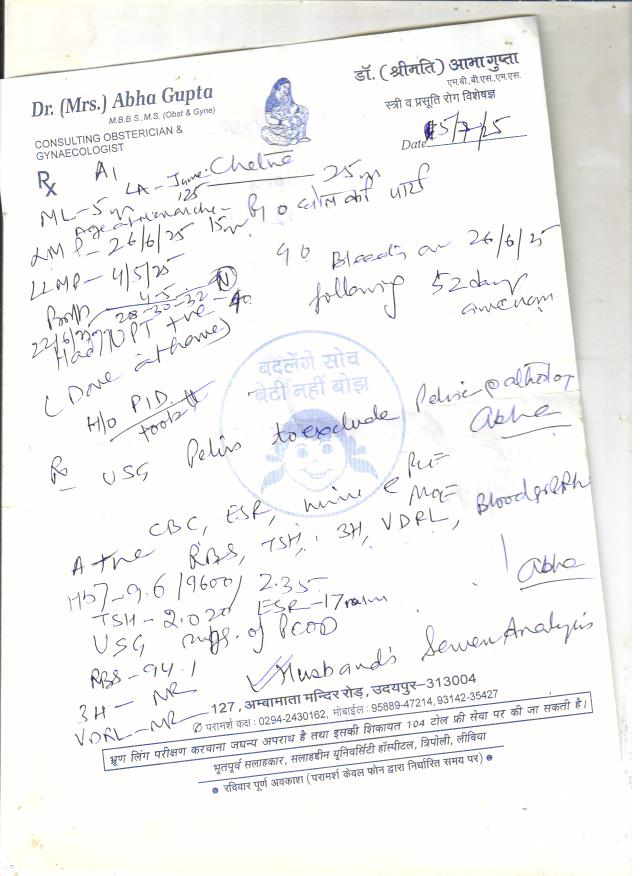 Dr. (Mrs.) Abha Gupta
M.B.B.S., M.S. (Obst & Gyne)
CONSULTING OBSTERICIAN &
GYNAECOLOGIST
डॉ. (श्रीमति) आभा गुप्ता
एम.बी.बी.एस.,एम.एस.
स्त्री व प्रसूति रोग विशेषज्ञ
Date 5/7/25
Rx A1
LA - June '25
ML - 5 yr
Age at menarche - 15 yr
LMP - 26/6/25
LLMP - 4/5/25
Bleeds on 26/6/25
following 52 days
4-5
28-30-32 (N)
22/6/25
Had UPT +ve
(Done at home)
H/O P.I.D.
बदलेंगे सोच
बेटी नहीं बोझ
Rx USG Pelvis to exclude Pelvic Pathology
Abha
CBC, ESR, Urine
RBS, TSH, 3H, VDRL, Blood
A +ve
Hb - 9.6/9600/2.35
TSH - 2.020/ ESR - 17
USG of PCOD
Abha
RBS - 94.1
3H - NR
Husband's Semen Analysis
VDRL - NR
127, अम्बामाता मन्दिर रोड़, उदयपुर-313004
परामर्श कक्ष : 0294-2430162, मोबाईल : 95889-47214, 93142-35427
भ्रूण लिंग परीक्षण करवाना जघन्य अपराध है तथा इसकी शिकायत 104 टोल फ्री सेवा पर की जा सकती है।
भूतपूर्व सलाहकार, सलाहद्दीन यूनिवर्सिटी हॉस्पीटल, त्रिपोली, लीबिया
● रविवार पूर्ण अवकाश (परामर्श केवल फोन द्वारा निर्धारित समय पर) ●